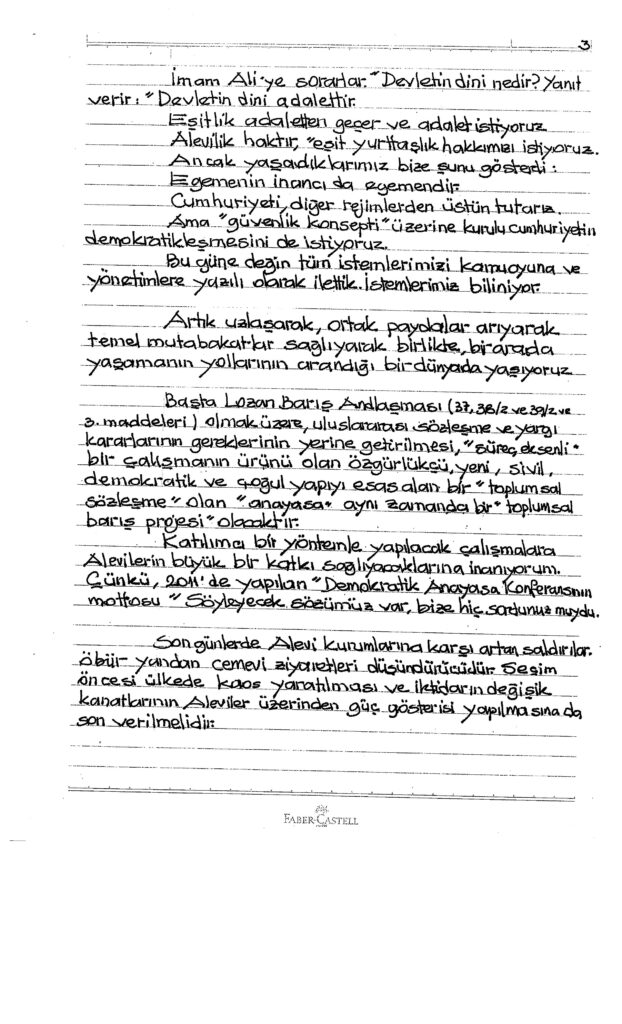 3
İmam Ali'ye sorarlar. "Devletin dini nedir? Yanıt
verir: "Devletin dini adalettir.
Eşitlik adaletten geçer ve adalet istiyoruz
Alevilik haktır, "eşit yurttaşlık hakkımızı istiyoruz.
Ancak yaşadıklarımız bize şunu gösterdi:
Egemenin inancı da egemendir.
Cumhuriyeti, diğer rejimlerden üstün tutarız.
Ama "güvenlik konsepti" üzerine kurulu cumhuriyetin
demokratikleşmesini de istiyoruz.
Bu güne değin tüm istemlerimizi kamuoyuna ve
yönetimlere yazılı olarak ilettik. İstemlerimiz biliniyor.
Artık uzlaşarak, ortak paydalar arıyarak
temel mutabakatlar sağlıyarak birlikte, birarada
yaşamanın yollarının arandığı bir dünyada yaşıyoruz
Başta Lozan Barış Andlaşması (37, 38/2 ve 39/2 ve
3. maddeleri) olmak üzere, uluslararası sözleşme ve yargı
kararlarının gereklerinin yerine getirilmesi, "süreç eksenli"
bir çalışmanın ürünü olan özgürlükçü, yeni, sivil,
demokratik ve çoğul yapıyı esas alan bir "toplumsal
sözleşme" olan "anayasa" aynı zamanda bir "toplumsal
barış projesi" olacaktır.
Katılımcı bir yöntemle yapılacak çalışmalara
Alevilerin büyük bir katkı sağlıyacaklarına inanıyorum.
Çünkü, 2011'de yapılan "Demokratik Anayasa Konferansının
mottosu "Söyleyecek sözümüz var, bize hiç sordunuz muydu.
Son günlerde Alevi kurumlarına karşı artan saldırılar.
öbür yandan cemevi ziyaretleri düşündürücüdür. Seçim
öncesi ülkede kaos yaratılması ve iktidarın değişik
kanatlarının Aleviler üzerinden güç gösterisi yapılmasına da
son verilmelidir.
FABER-CASTELL